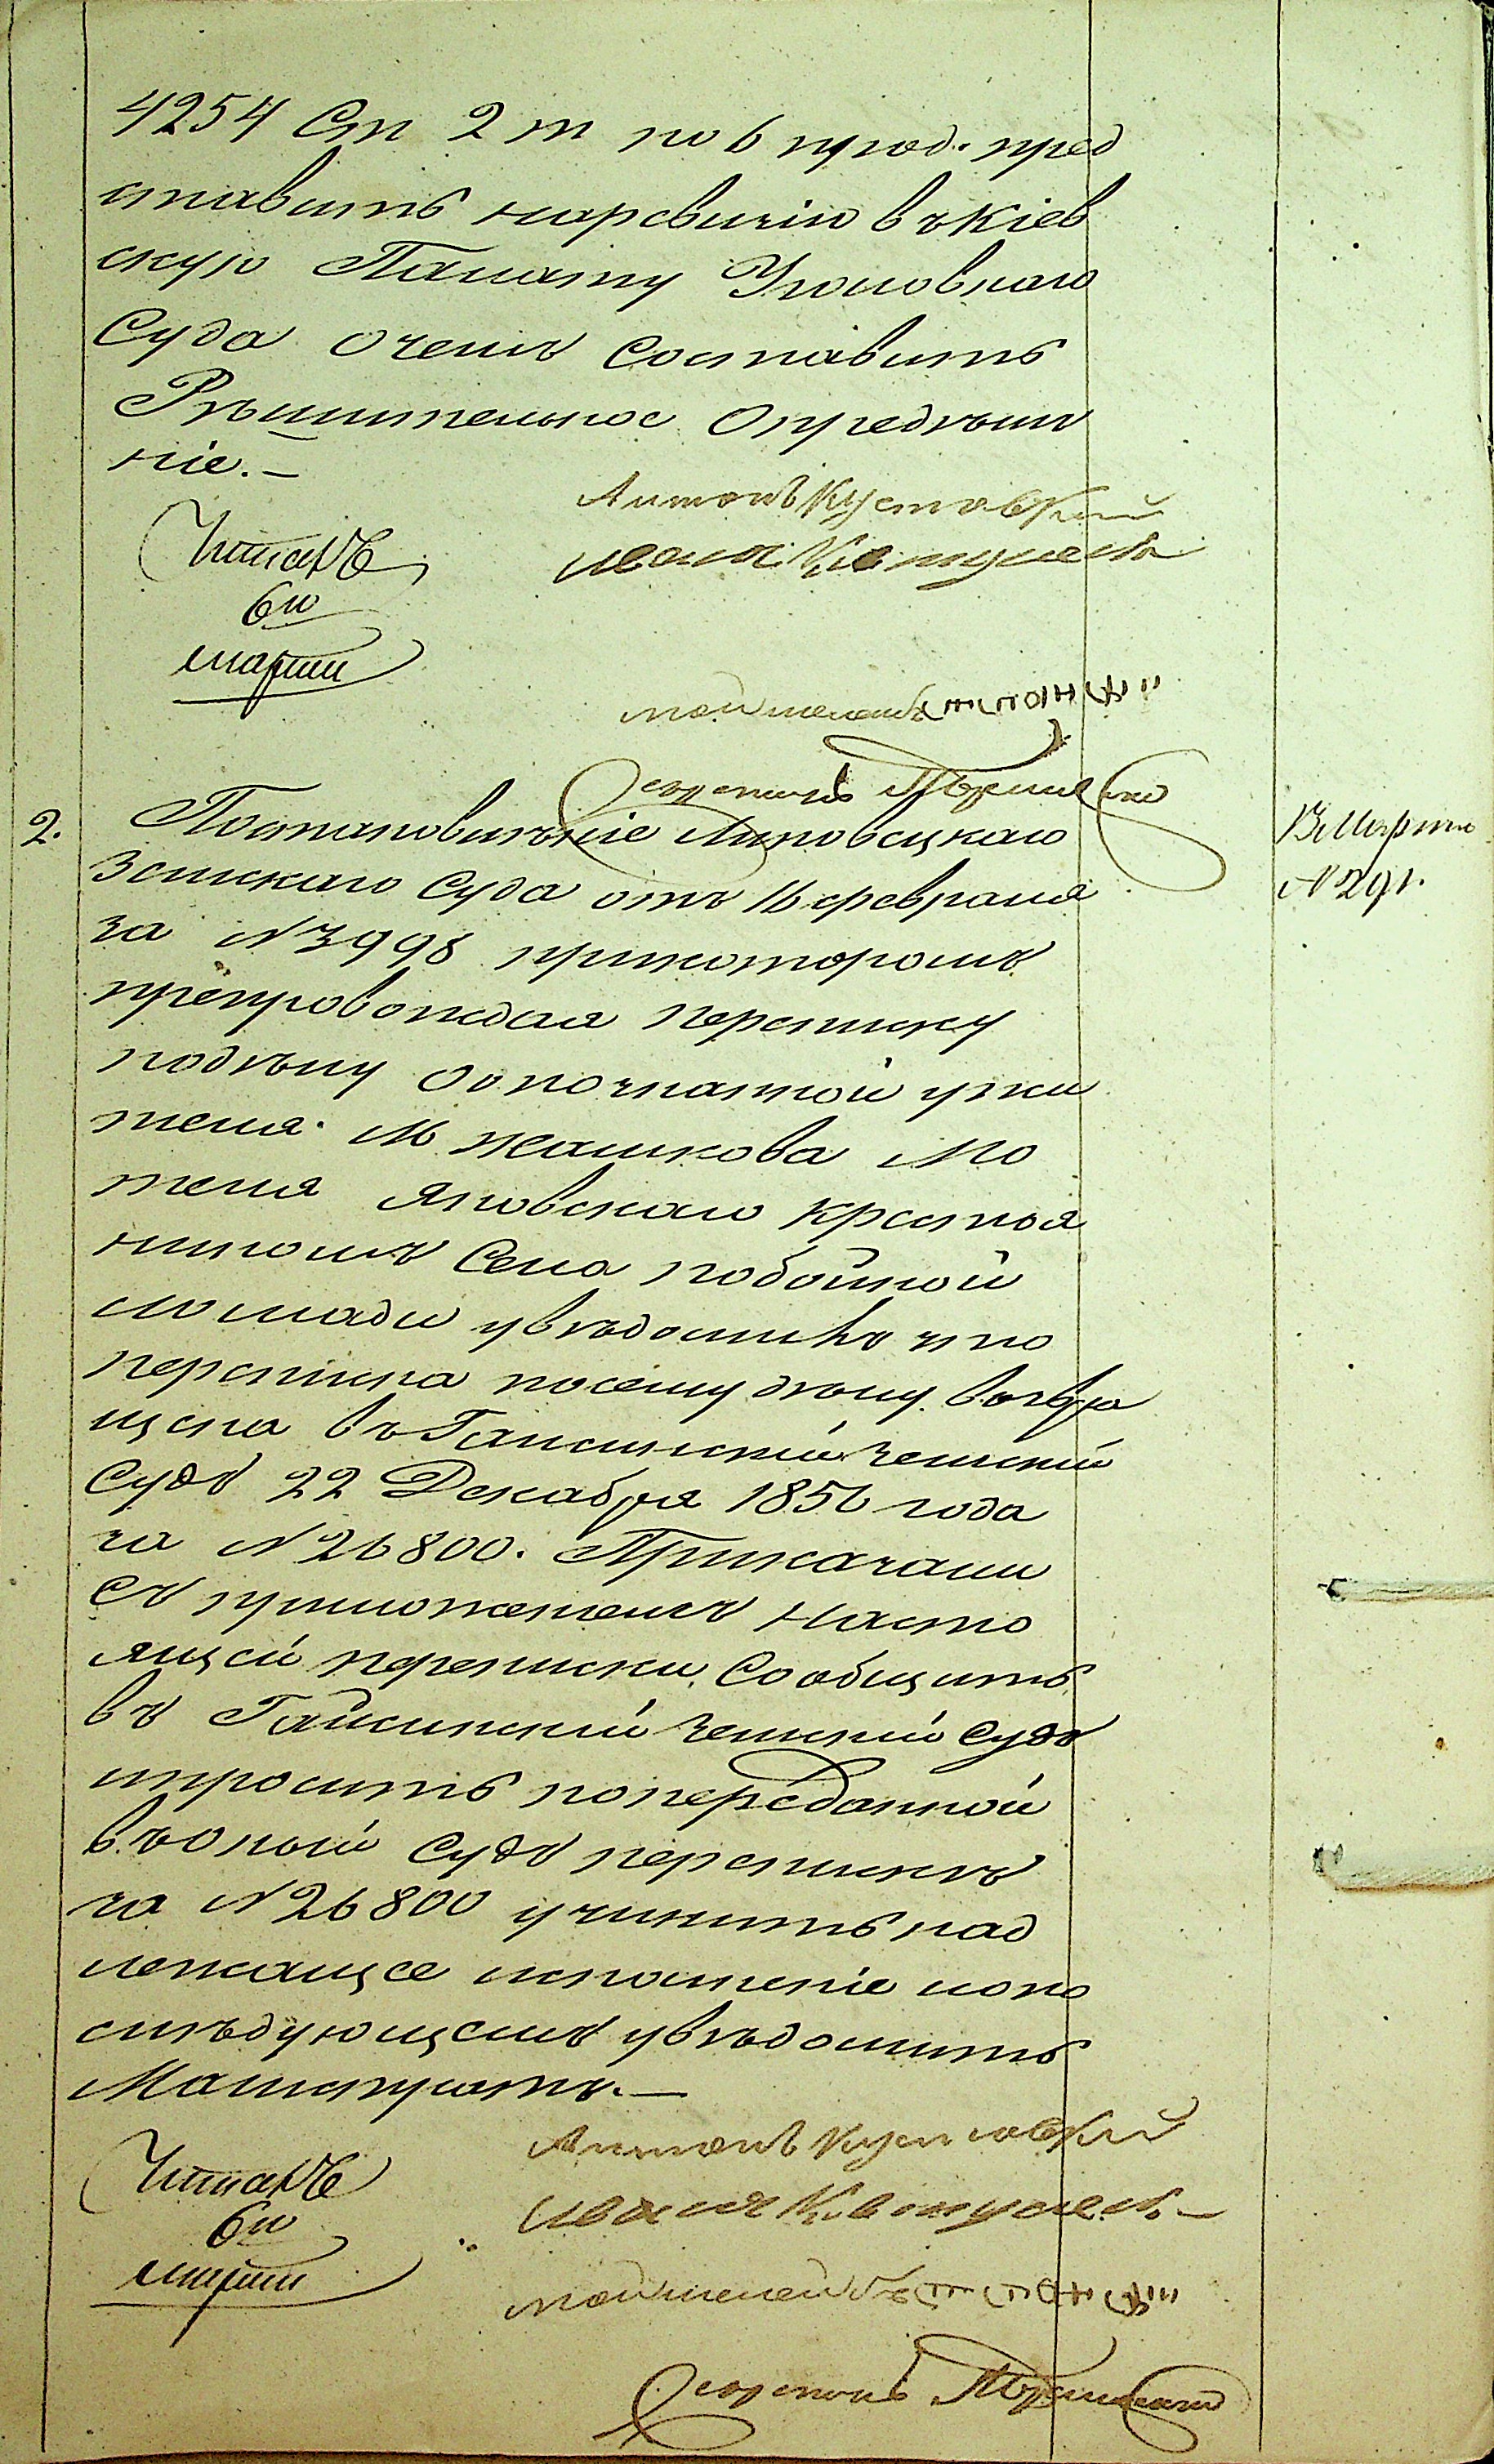 4254 Ст 2 т по 6 прод. пред
ставить на ревизію въ Кіев
скую Палату Уголовнаго
Суда о чемъ составить
Рѣшительное Опредѣле
ніе. —
Антонъ Кустовский
Читалъ
6го
марта
2. Постановленіе Липовецкаго
Земскаго Суда отъ 16 февраля
за N 3998 при которомъ
препровождая переписку
по дѣлу о опознанной у жи
теля м Жашкова Мо
теля Яновскаго крестья
ниномъ Села побойной
лошади увѣдомилъ что
переписка по сему дѣлу возвра
щена въ Гайсинскій Земскій
Судъ 22 Декабря 1856 года
за N 26800. Приказали
Съ приложеніемъ насто
ящей переписки, Сообщить
въ Гайсинскій Земскій Судъ
и просить по переданной
въ оный Судъ перепискѣ
за N 26800 учинить над
лежащее исполненіе и о по
слѣдующемъ увѣдомить
Магистратъ. —
В. Марта
N 291.
Антонъ Кустовский
Читалъ
6го
марта